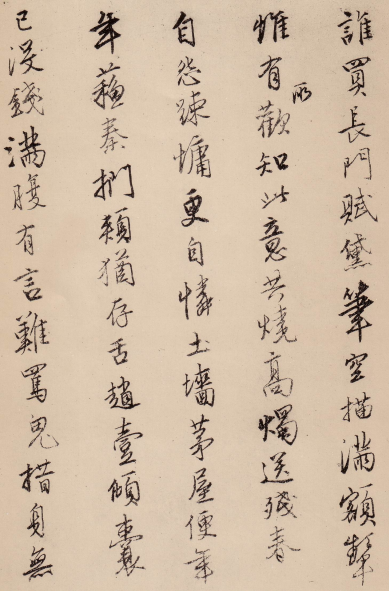 誰買長門賦黛筆空描滿額顰
惟有所歡知此意共燒高燭送殘春
自怨疎慵更自憐土墻茅屋便年
年蘇秦捫頰猶存舌趙壹傾囊
已沒錢滿腹有言難罵鬼措身無